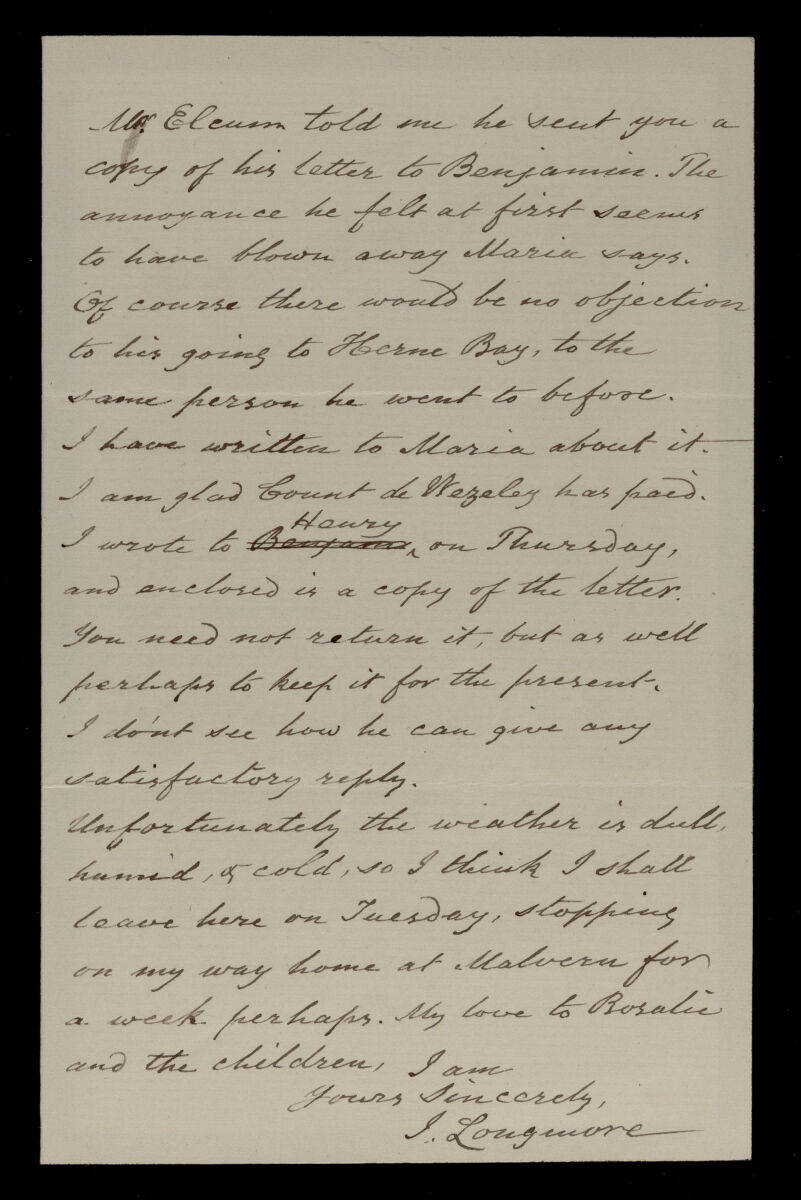 Mr. Elcum told me he sent you a
copy of his letter to Benjamin. The
annoyance he felt at first seems
to have blown away Maria says.
Of course there would be no objection
to his going to Herne Bay, to the
same person he went to before.
I have written to Maria about it.
I am glad Count de Wezeley has paid.
Henry
I wrote to Benjamin on Thursday,
and enclosed is a copy of the letter.
You need not return it, but as well
perhaps to keep it for the present.
I do'nt see how he can give any
satisfactory reply.
Unfortunately the weather is dull,
humid, & cold, so I think I shall
leave here on Tuesday, stopping
on my way home at Malvern for
a week perhaps. My love to Rosalie
and the children, I am
Yours Sincerely,
J. Longmore